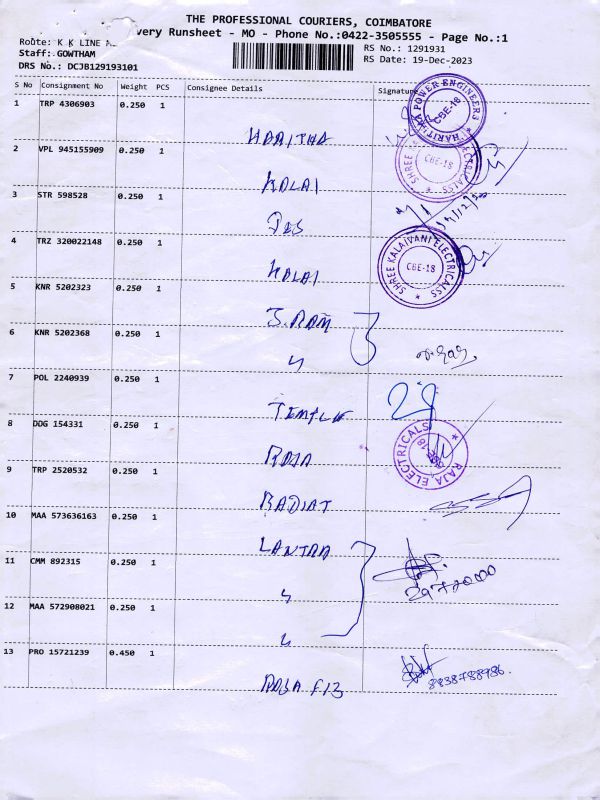 THE PROFESSIONAL COURIERS, COIMBATORE
very Runsheet - MO - Phone No.:0422-3505555 - Page No.:1
Route: K K LINE
Staff: GOWTHAM
DRS No.: DCJB129193101
RS No.: 1291931
RS Date: 19-Dec-2023
S No Consignment No Weight PCS Consignee Details Signature
1 TRP 4306903 0.250 1
HARITHA
HARITHAA POWER ENGINEERS
CBE-18
2 VPL 945155909 0.250 1
KALAI
SHREE ELECTRICALSS
CBE-18
3 STR 598528 0.250 1
4 TRZ 320022148 0.250 1
KALAI
SHREE KALAIVANI ELECTRICALSS
CBE-18
5 KNR 5202323 0.250 1
S.RAM
6 KNR 5202368 0.250 1
〃
7 POL 2240939 0.250 1
TEMPLE
8 DDG 154331 0.250 1
ROJA
RAJA ELECTRICALS
9 TRP 2520532 0.250 1
RADIAT
10 MAA 573636163 0.250 1
LANTRA
11 CMM 892315 0.250 1
〃
12 MAA 572908021 0.250 1
〃
13 PRO 15721239 0.450 1
8838788986.